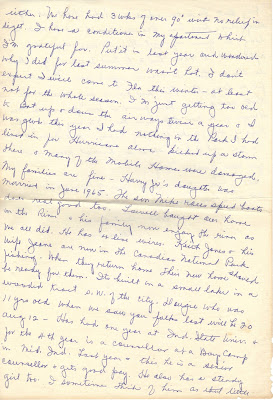 either. We have had 3 wks of over 90° with no relief in
sight. I have air conditions in my apartment which
I'm grateful for. Put it in last year and wondered
why I did for last summer wasn't hot. I don't
expect I will come to Fla this winter - at least
not for the whole season. I'm just getting too old
to get up & down the air ways twice a year & I
was glad this year I had nothing in the Park I had
lived in for Hurricane Cleo kicked up a storm
there & many of the Mobile Homes were damaged.
My families are fine - Harry Jr's daughter was
married in June 1965. The son Mike races speed boats
does real good too. Lowell bought our home
on the River & his family now enjoy the river as
we all did. He has as live wires. Keith Jones & his
wife Jeans are now in the Canadian National Park
fishing. When they return home their new home should
be ready for them. It's built on a small lake in a
wooded tract S.W. of the city. Dougie who was
11 yrs old when we saw you folks last will be 20
Aug 12 - Has had one year at Ind. State Univ. &
for the 4th year is a counsellor at a Boy Camp
in Mid. Ind. Last year & this he is a senior
counsellor & gets good pay. He also has a steady
girl too. I sometimes think of him as that little